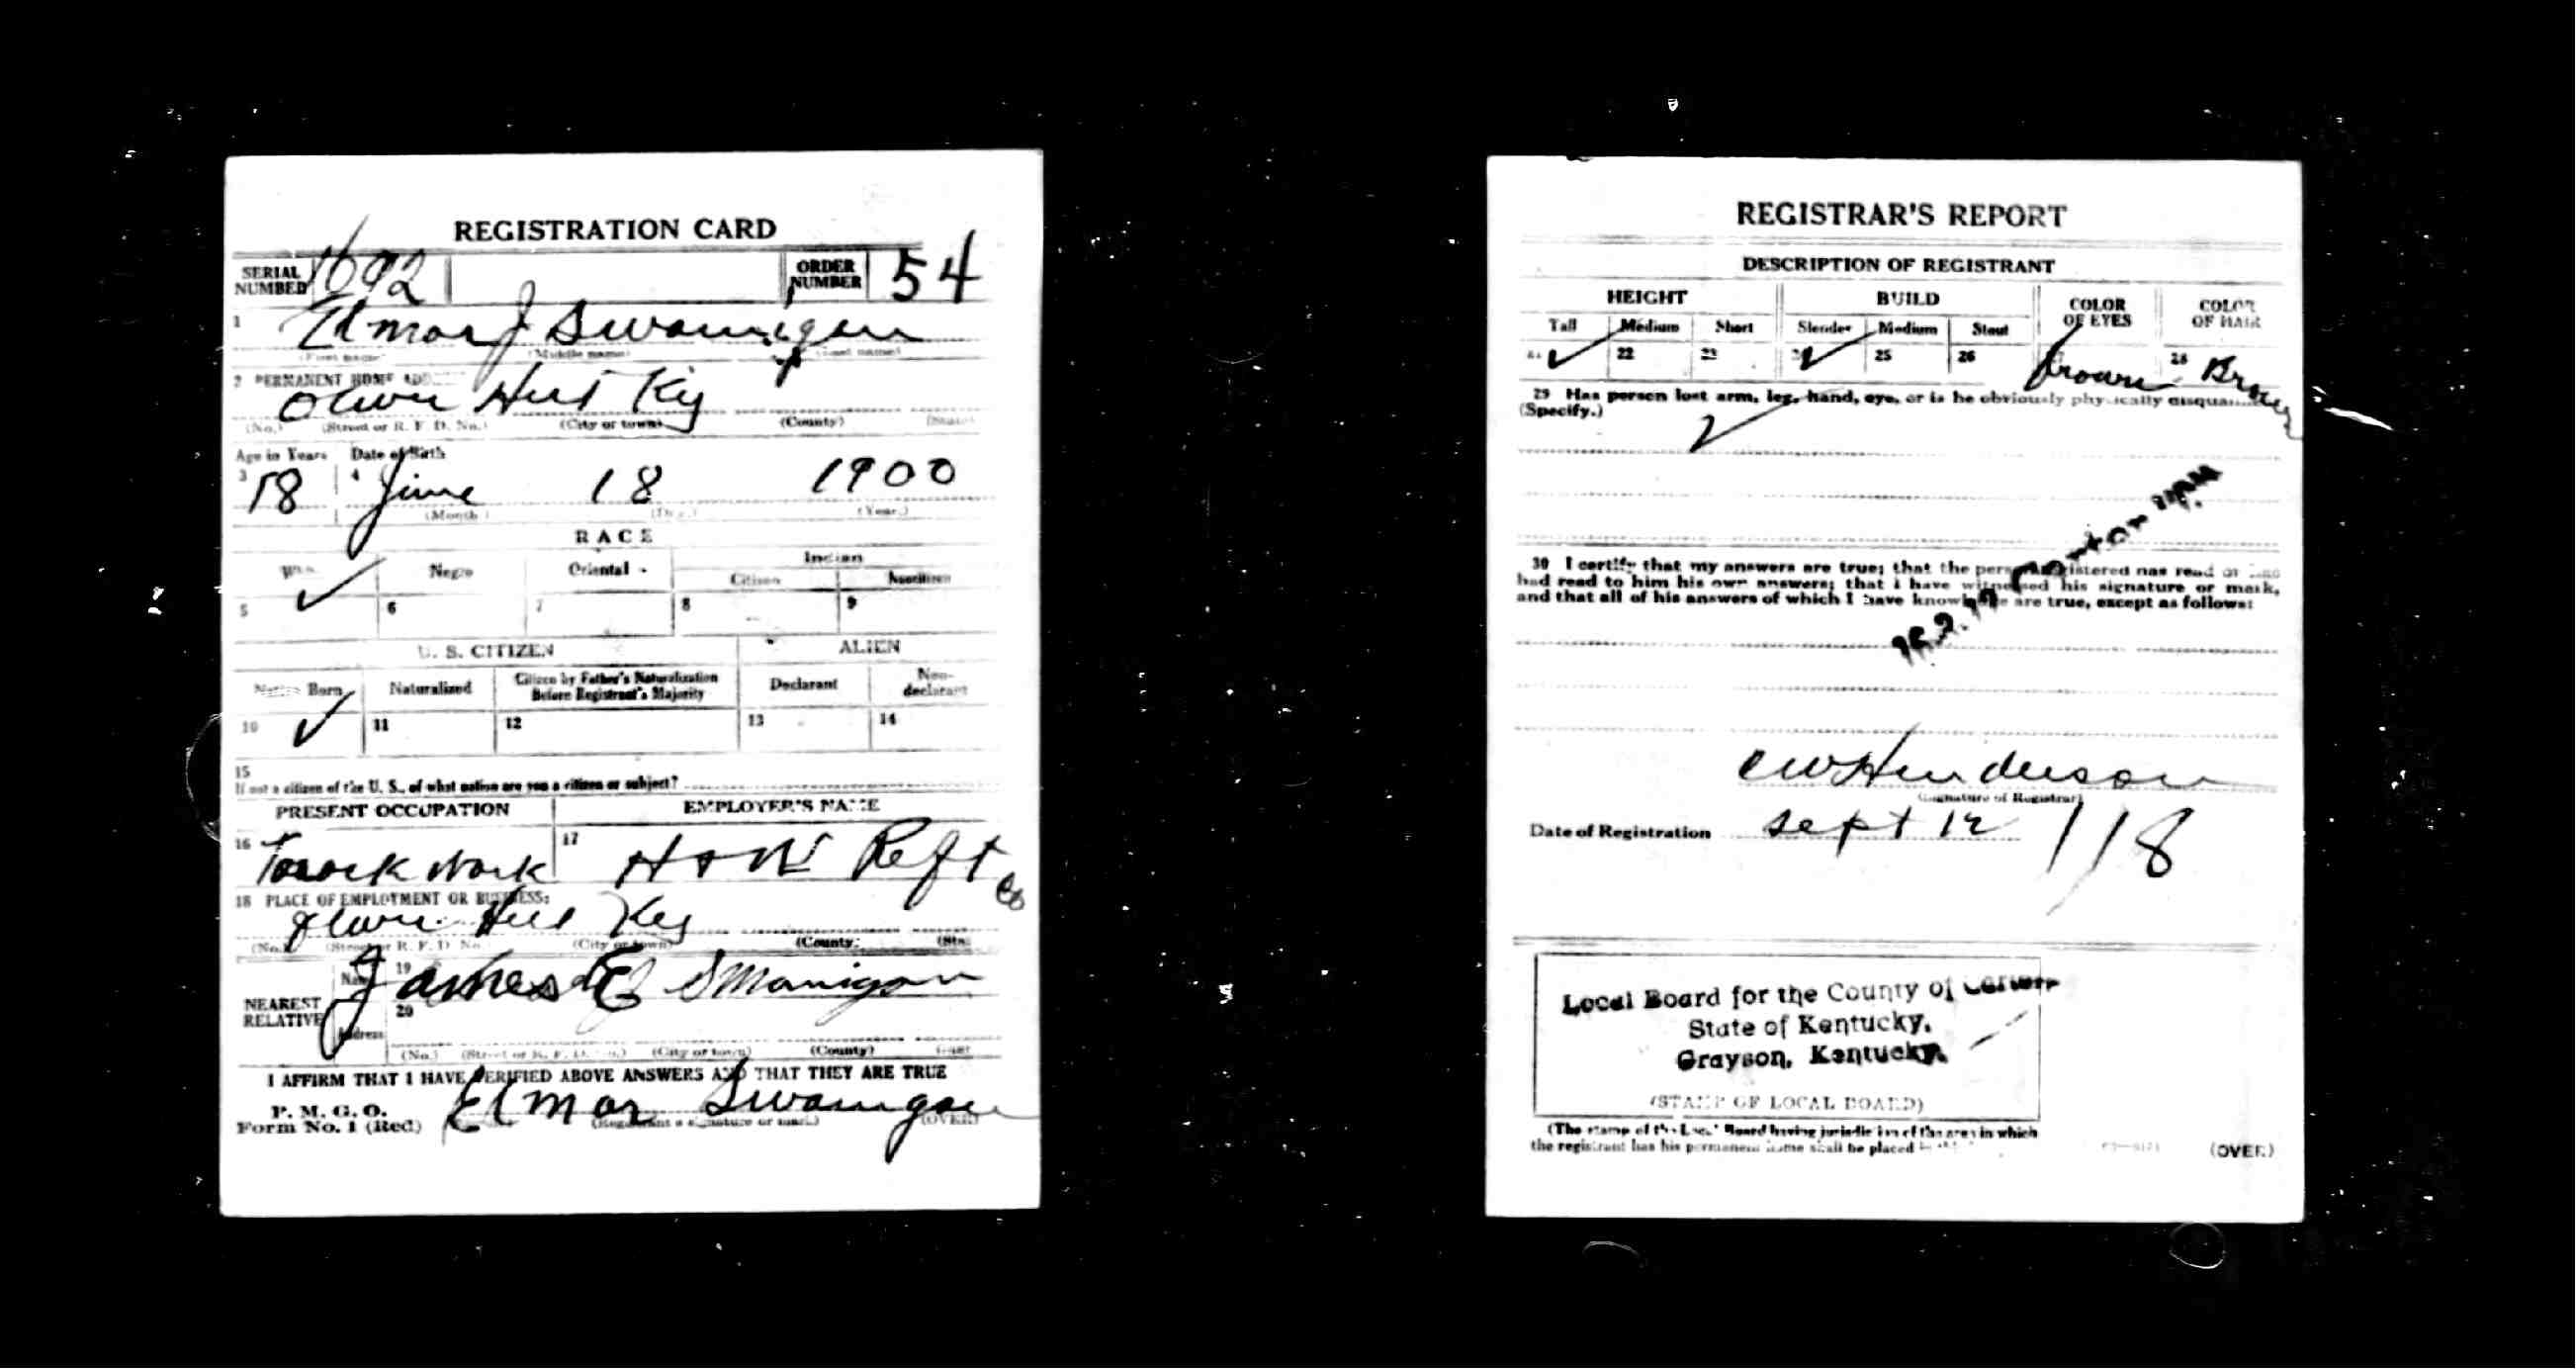 REGISTRATION CARD
SERIAL NUMBER 1692 ORDER NUMBER 54
1 Elmar J Swanigan
(First name) (Middle name) (Last name)
2 PERMANENT HOME ADD
Olive Hill Ky
(No.) (Street or R. F. D. No.) (City or town) (County) (State)
Age in Years Date of Birth
3 18 4 June 18 1900
(Month) (Day.) (Year.)
RACE
White Negro Oriental Indian
Citizen Noncitizen
5 ✓ 6 7 8 9
U. S. CITIZEN ALIEN
Native Born Naturalized Citizen by Father's Naturalization Before Registrant's Majority Declarant Non-declarant
10 ✓ 11 12 13 14
15
If not a citizen of the U. S., of what nation are you a citizen or subject?
PRESENT OCCUPATION EMPLOYER'S NAME
16 work 17 Reft Co
18 PLACE OF EMPLOYMENT OR BUSINESS:
Olive Hill Ky
(No.) (Street or R. F. D. No.) (City or town) (County) (State)
NEAREST RELATIVE Name 19 James E
Address 20
(No.) (Street or R. F. D. No.) (City or town) (County) (State)
I AFFIRM THAT I HAVE VERIFIED ABOVE ANSWERS AND THAT THEY ARE TRUE
P. M. G. O.
Form No. 1 (Red) Elmar Swanigan
(Registrant's signature or mark) (OVER)
REGISTRAR'S REPORT
DESCRIPTION OF REGISTRANT
HEIGHT BUILD COLOR OF EYES COLOR OF HAIR
Tall Medium Short Slender Medium Stout
21 ✓ 22 23 24 ✓ 25 26 brown 28 Brown
29 Has person lost arm, leg, hand, eye, or is he obviously physically disqualified?
(Specify.)
30 I certify that my answers are true; that the person registered has read or has
had read to him his own answers; that I have witnessed his signature or mark,
and that all of his answers of which I have knowledge are true, except as follows:
C W Henderson
(Signature of Registrar)
Date of Registration Sept 12 / 18
Local Board for the County of Carter
State of Kentucky,
Grayson, Kentucky.
(STAMP OF LOCAL BOARD)
(The stamp of the Local Board having jurisdiction of the area in which
the registrant has his permanent home shall be placed in
(OVER)